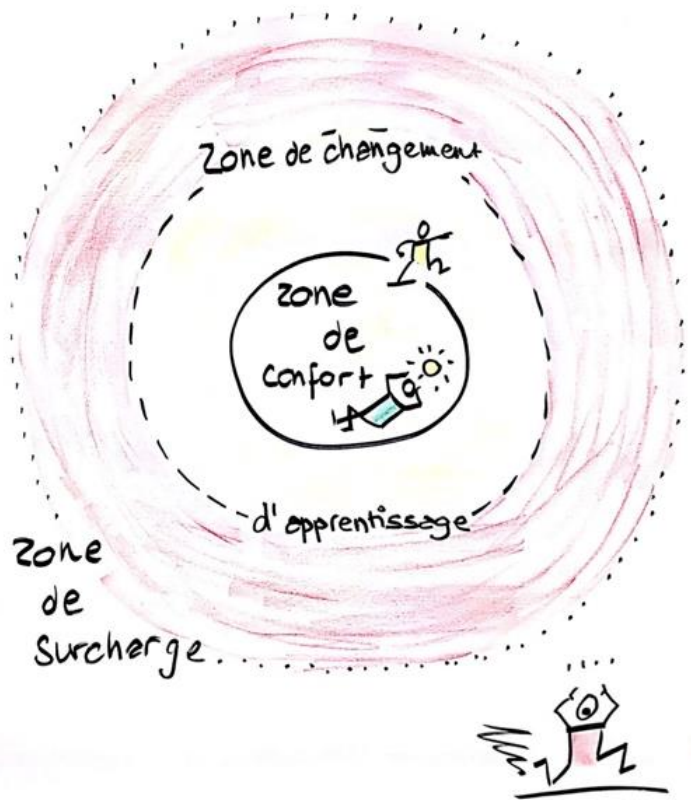 Zone de changement
zone
de
confort
d'apprentissage
Zone
de
Surcharge